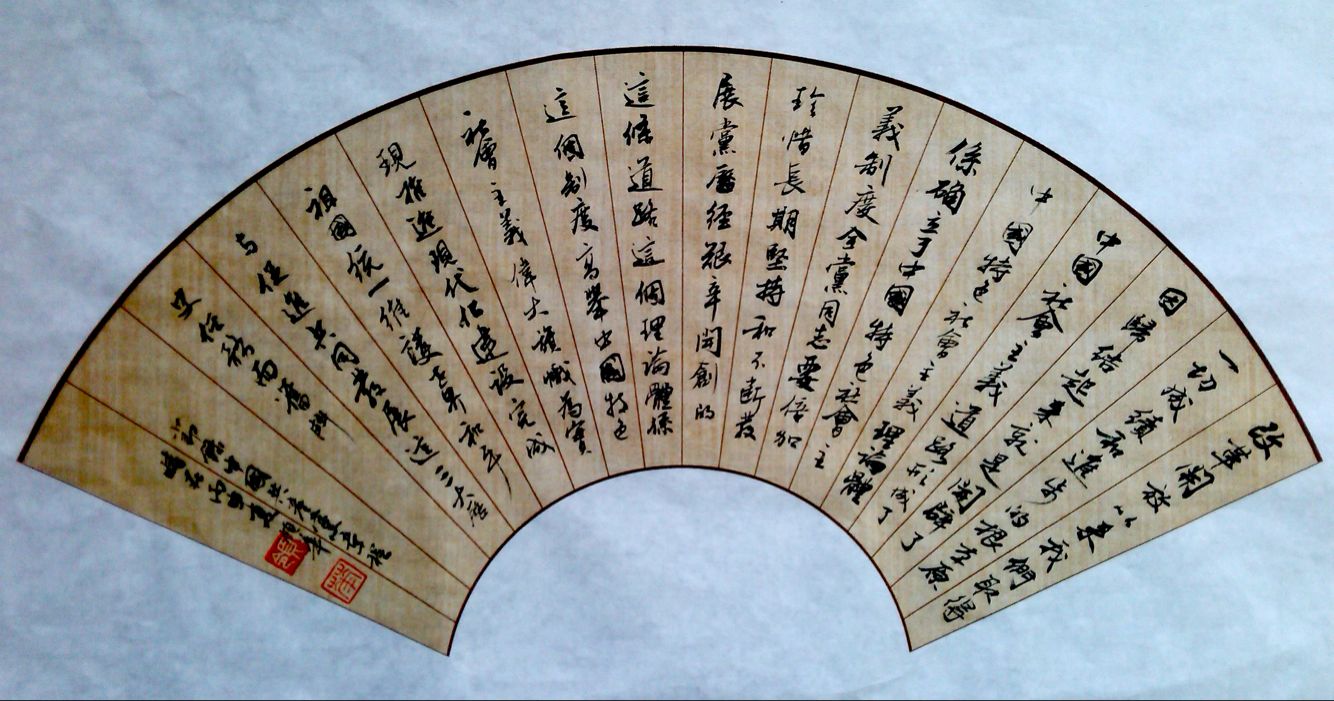 改革開放以来我們取得
一切成績和進步的根本原
因歸结起来就是開辟了
中國社會主義道路形成了
中國特色社會主義理論體
係确立了中國特色社會主
義制度全黨同志要倍加
珍惜長期堅持和不断發
展黨歷經艱辛開創的
這條道路這個理論體係
這個制度高舉中國特色
社會主義偉大旗幟為實
現推進現代化建設完成
祖國統一維護世界和平
与促進共同發展這三大歷
史任務而奮鬥